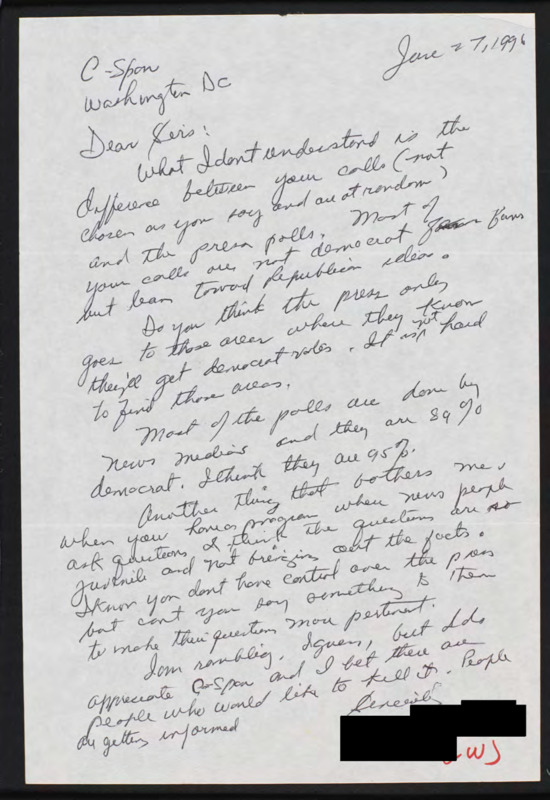 June 27, 1996
C-Span
Washington DC
Dear Sirs:
What I dont understand is the
difference between your calls (not
chosen as you say and are at random)
and the press polls. Most of
your calls are not democrat fans
but lean toward Republican ideas.
Do you think the press only
goes to those areas where they know
they'll get democrat votes. It is not hard
to find those areas.
Most of the polls are done by
news medias and they are 89%
democrat. I think they are 95%.
Another thing that bothers me,
when you have a program where news people
ask questions, I think the questions are so
juvenile and not bringing out the facts.
I know you dont have control over the press
but can't you say something to them
to make their question more pertinent.
I am rambling, I guess, but I do
appreciate C-Span and I bet there are
people who would like to kill it. People
are getting informed
Sincerely
WS